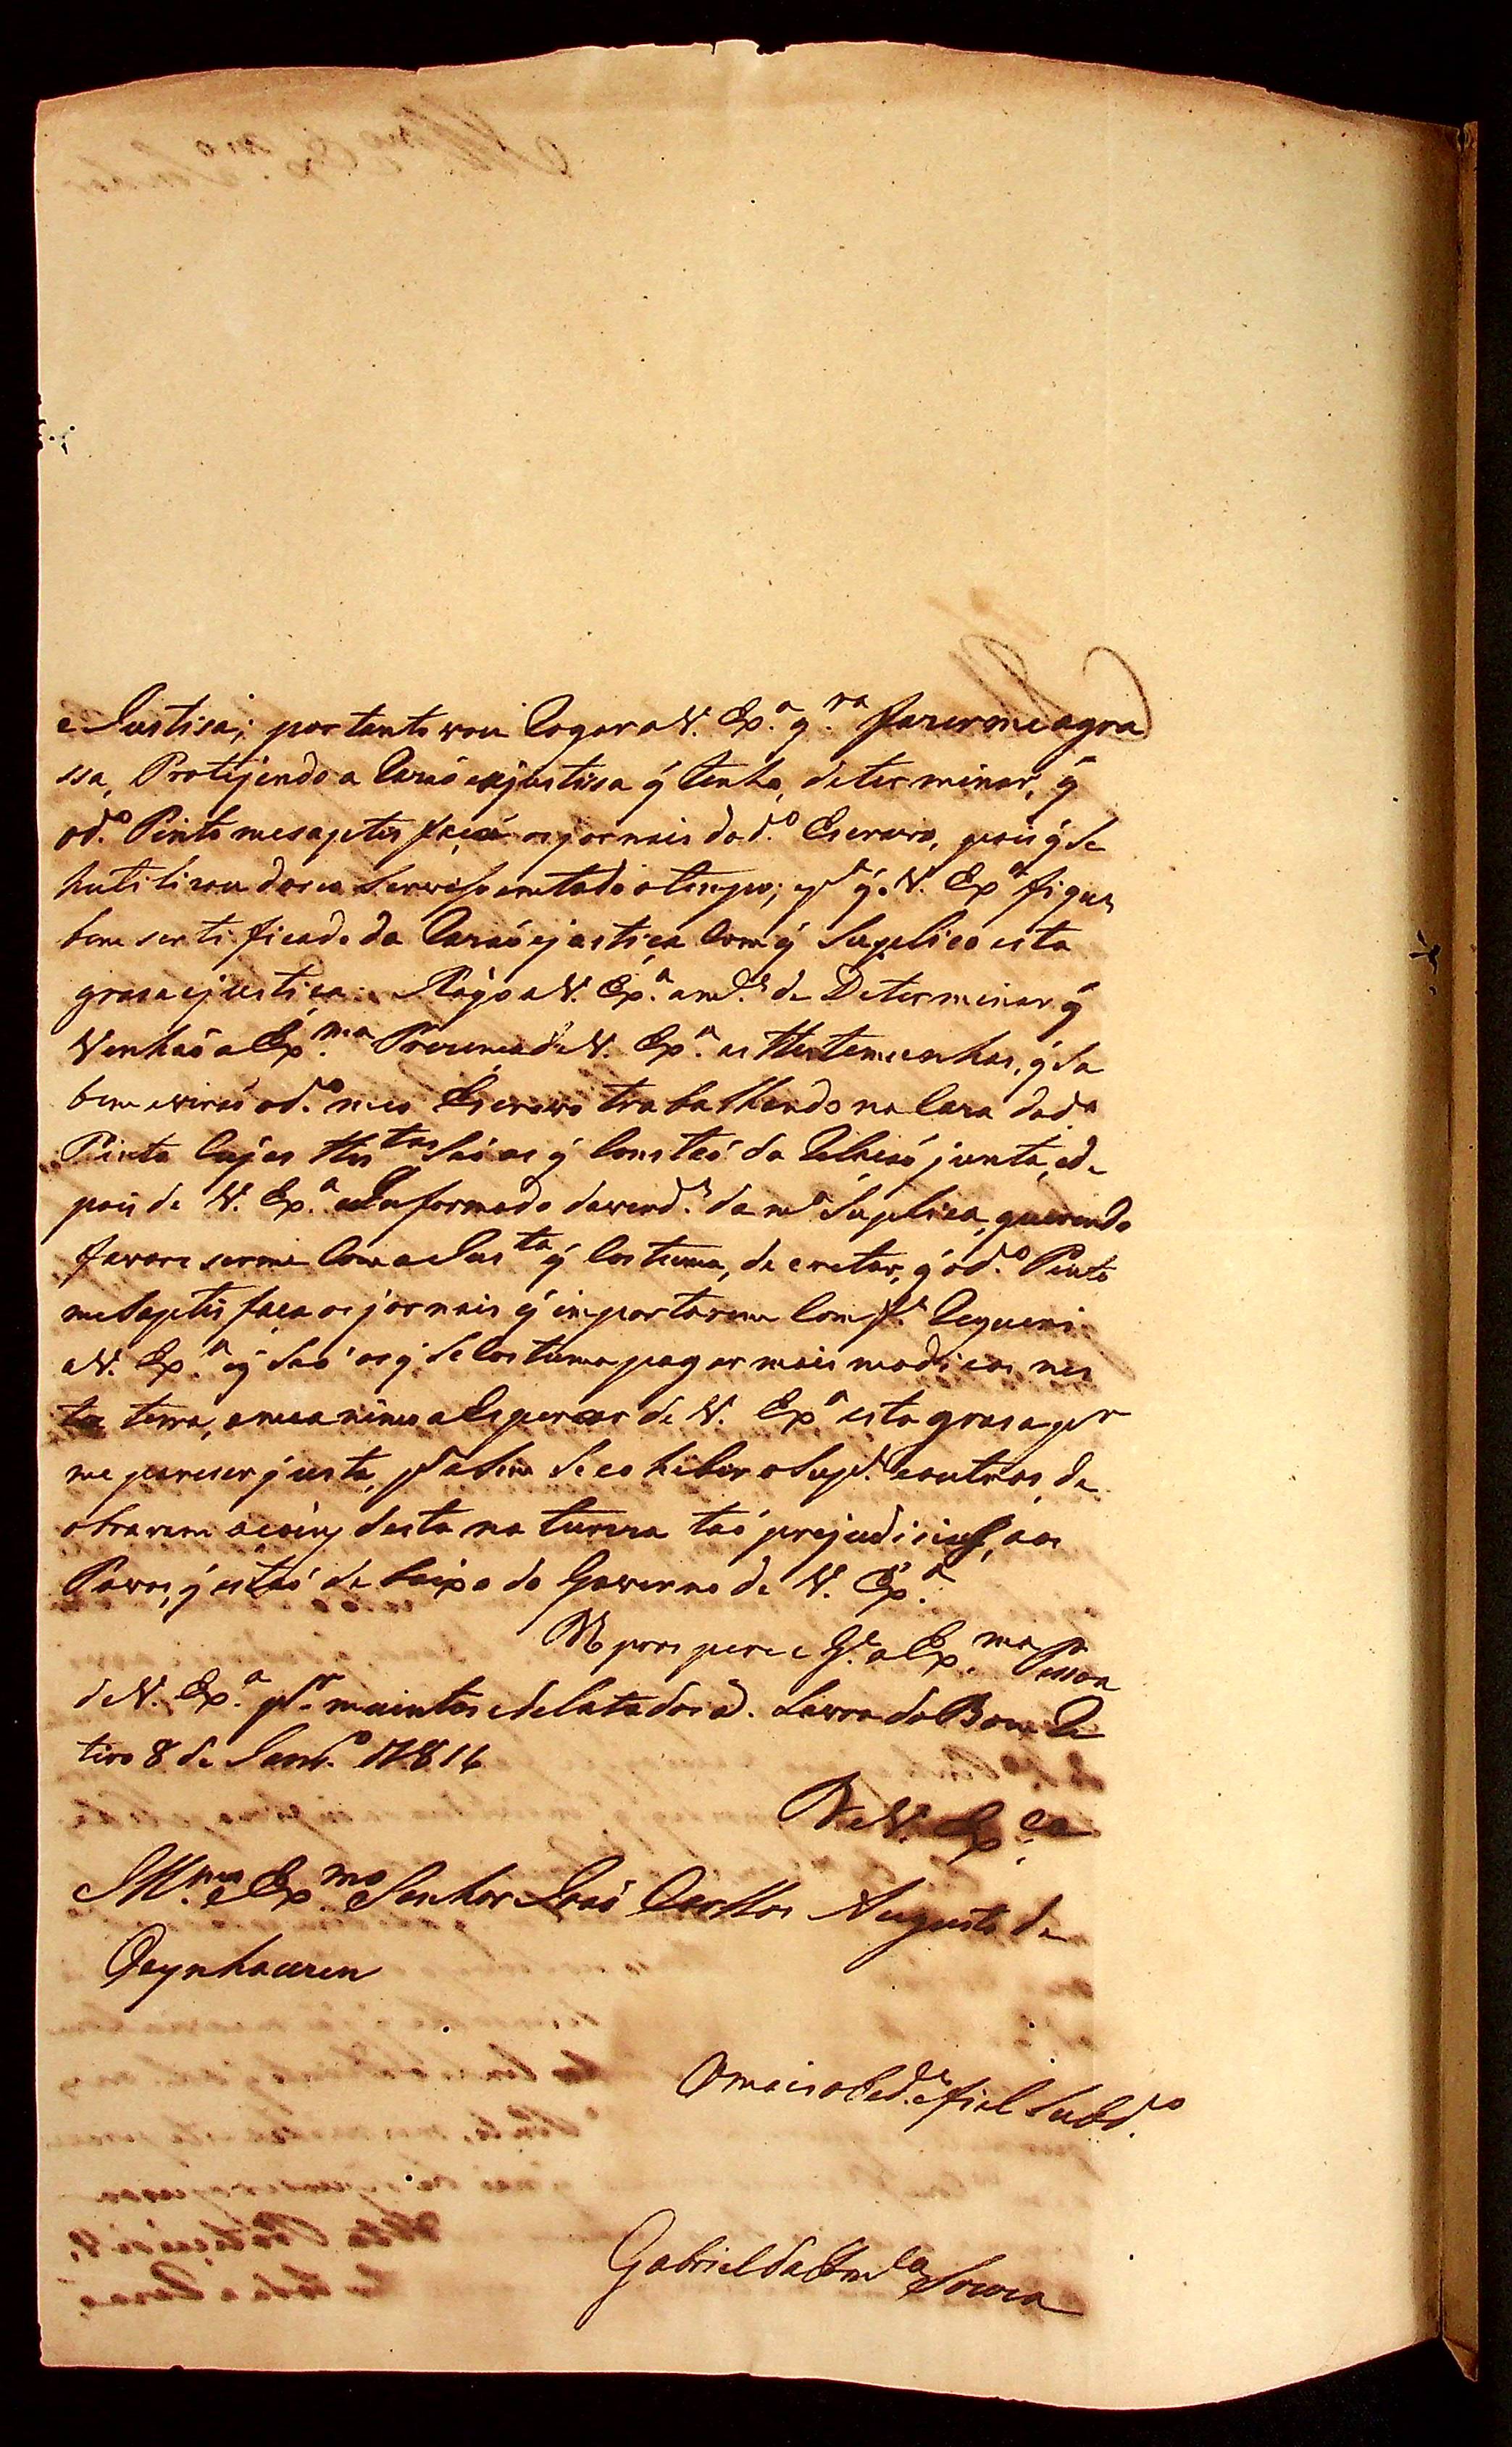 e Justisa; por tanto vou Rogar a V. Ex.ª q.ra fazerme a gra
ssa, Protejendo a Razaó e justissa q̃ tenho, determinar, q̃
o d.º Pinto me saptis faça os jornais do d.º Escravo, pois q̃ se
hutilizou do seu serviso em todo o tempo; e p.ª q̃. V. Ex.ª fique
bem sertificado da Razaó e justiça Com q̃ Suplico esta
grasa e justiça: Rógo a V. Ex.ª a md.e de Determinar q̃
Venhaó a Ex.ma Prezença de V. Ex.ª as Thestemunhas, q̃ Sa
bem e viraó o d.º meo Escravo trabalhando na Caza do d.º
Pinto Cujas Thes.tas saó as q̃ Constaó da Relasaó junta, e de
pois de V. Ex.ª Informado da verd.e da m.ª Suplica, querendo
favoreserme Com a Jus.ta q̃ Costuma, decretar, q̃ o d.º Pinto
me Saptis faça os jornais q̃ importarem Comf.e Requeri
a V. Ex.ª q̃ Saó os q̃ se Costuma pagar mais modicos nes
ta terra, e me animo a Esperar de V. Ex.ª esta grasa p.r
me pareser justa, p.ª asim se cohibir o Sup.e e outros, de
obrarem acoins desta natureza taó prejudisial, aos
Povos, q̃ estaó de baixo do Governo de V. Ex.ª
prospere e G.e a Ex.ma Pessoa
de V. Ex.ª p.r muintos e delatados a. Lavra do Bom Re
tiro 8 de Janr.º 1816
De V. Ex.cia
Ill.mo e Ex.mo Senhor Joaó Carllos Augusto de
Oeynhausen
O mais obed.e e fiel Subd.º
Gabriel da Fon.ca Souza